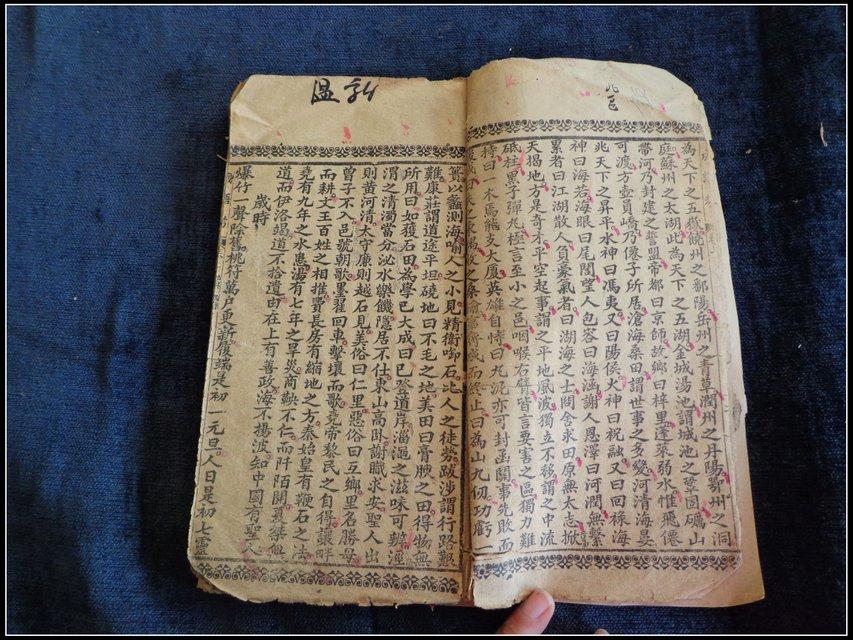 為天下之五嶽饒州之鄱陽岳州之青草潤州之丹陽鄂州之洞
庭蘇州之太湖此為天下之五湖金城湯池謂城池之鞏固礪山
帶河乃封建之誓盟帝都曰京師故鄉曰梓里蓬萊弱水惟飛僊
可渡方壺員嶠乃僊子所居滄海桑田謂世事之多變河清海晏
兆天下之昇平水神曰馮夷又曰陽侯火神曰祝融又曰回祿海
神曰海若海眼曰尾閭望人包容曰海涵謝人恩澤曰河潤無繫
累者曰江湖散人負豪氣者曰湖海之士問舍求田原無大志掀
天揭地方是奇才平空起事謂之平地風波獨立不移謂之中流
砥柱黑子彈丸極言至小之邑咽喉右臂皆言要害之區獨力難
持曰一木焉能支大厦英雄自恃曰丸泥亦可封函關事先敗而
之東隅收之桑榆事將成而終止曰為山九仞功虧
溫
簣以蠡測海喻人之小見精衛啣石比人之徒勞跋涉謂行路艱
難康莊謂道途平坦磽地曰不毛之地美田曰膏腴之田得物無
所用曰如獲石田為學已大成曰已登道岸淄澠之滋味可辨涇
渭之清濁當分泌水樂饑隱居不仕東山高卧謝職求安聖人出
則黃河清太守廉則越石見美俗曰仁里惡俗曰互鄉里名勝母
曾子不入邑號朝歌墨翟回車擊壤而歌堯帝黎民之自得讓畔
而耕文王百姓之相推費長房有縮地之方秦始皇有鞭石之法
堯有九年之水患湯有七年之旱災商鞅不仁而阡陌開夏桀無
道而伊洛竭道不拾遺由在上有善政海不揚波知中國有聖人
歲時
爆竹一聲除舊桃符萬戶更新履端是初一元旦人日是初七靈